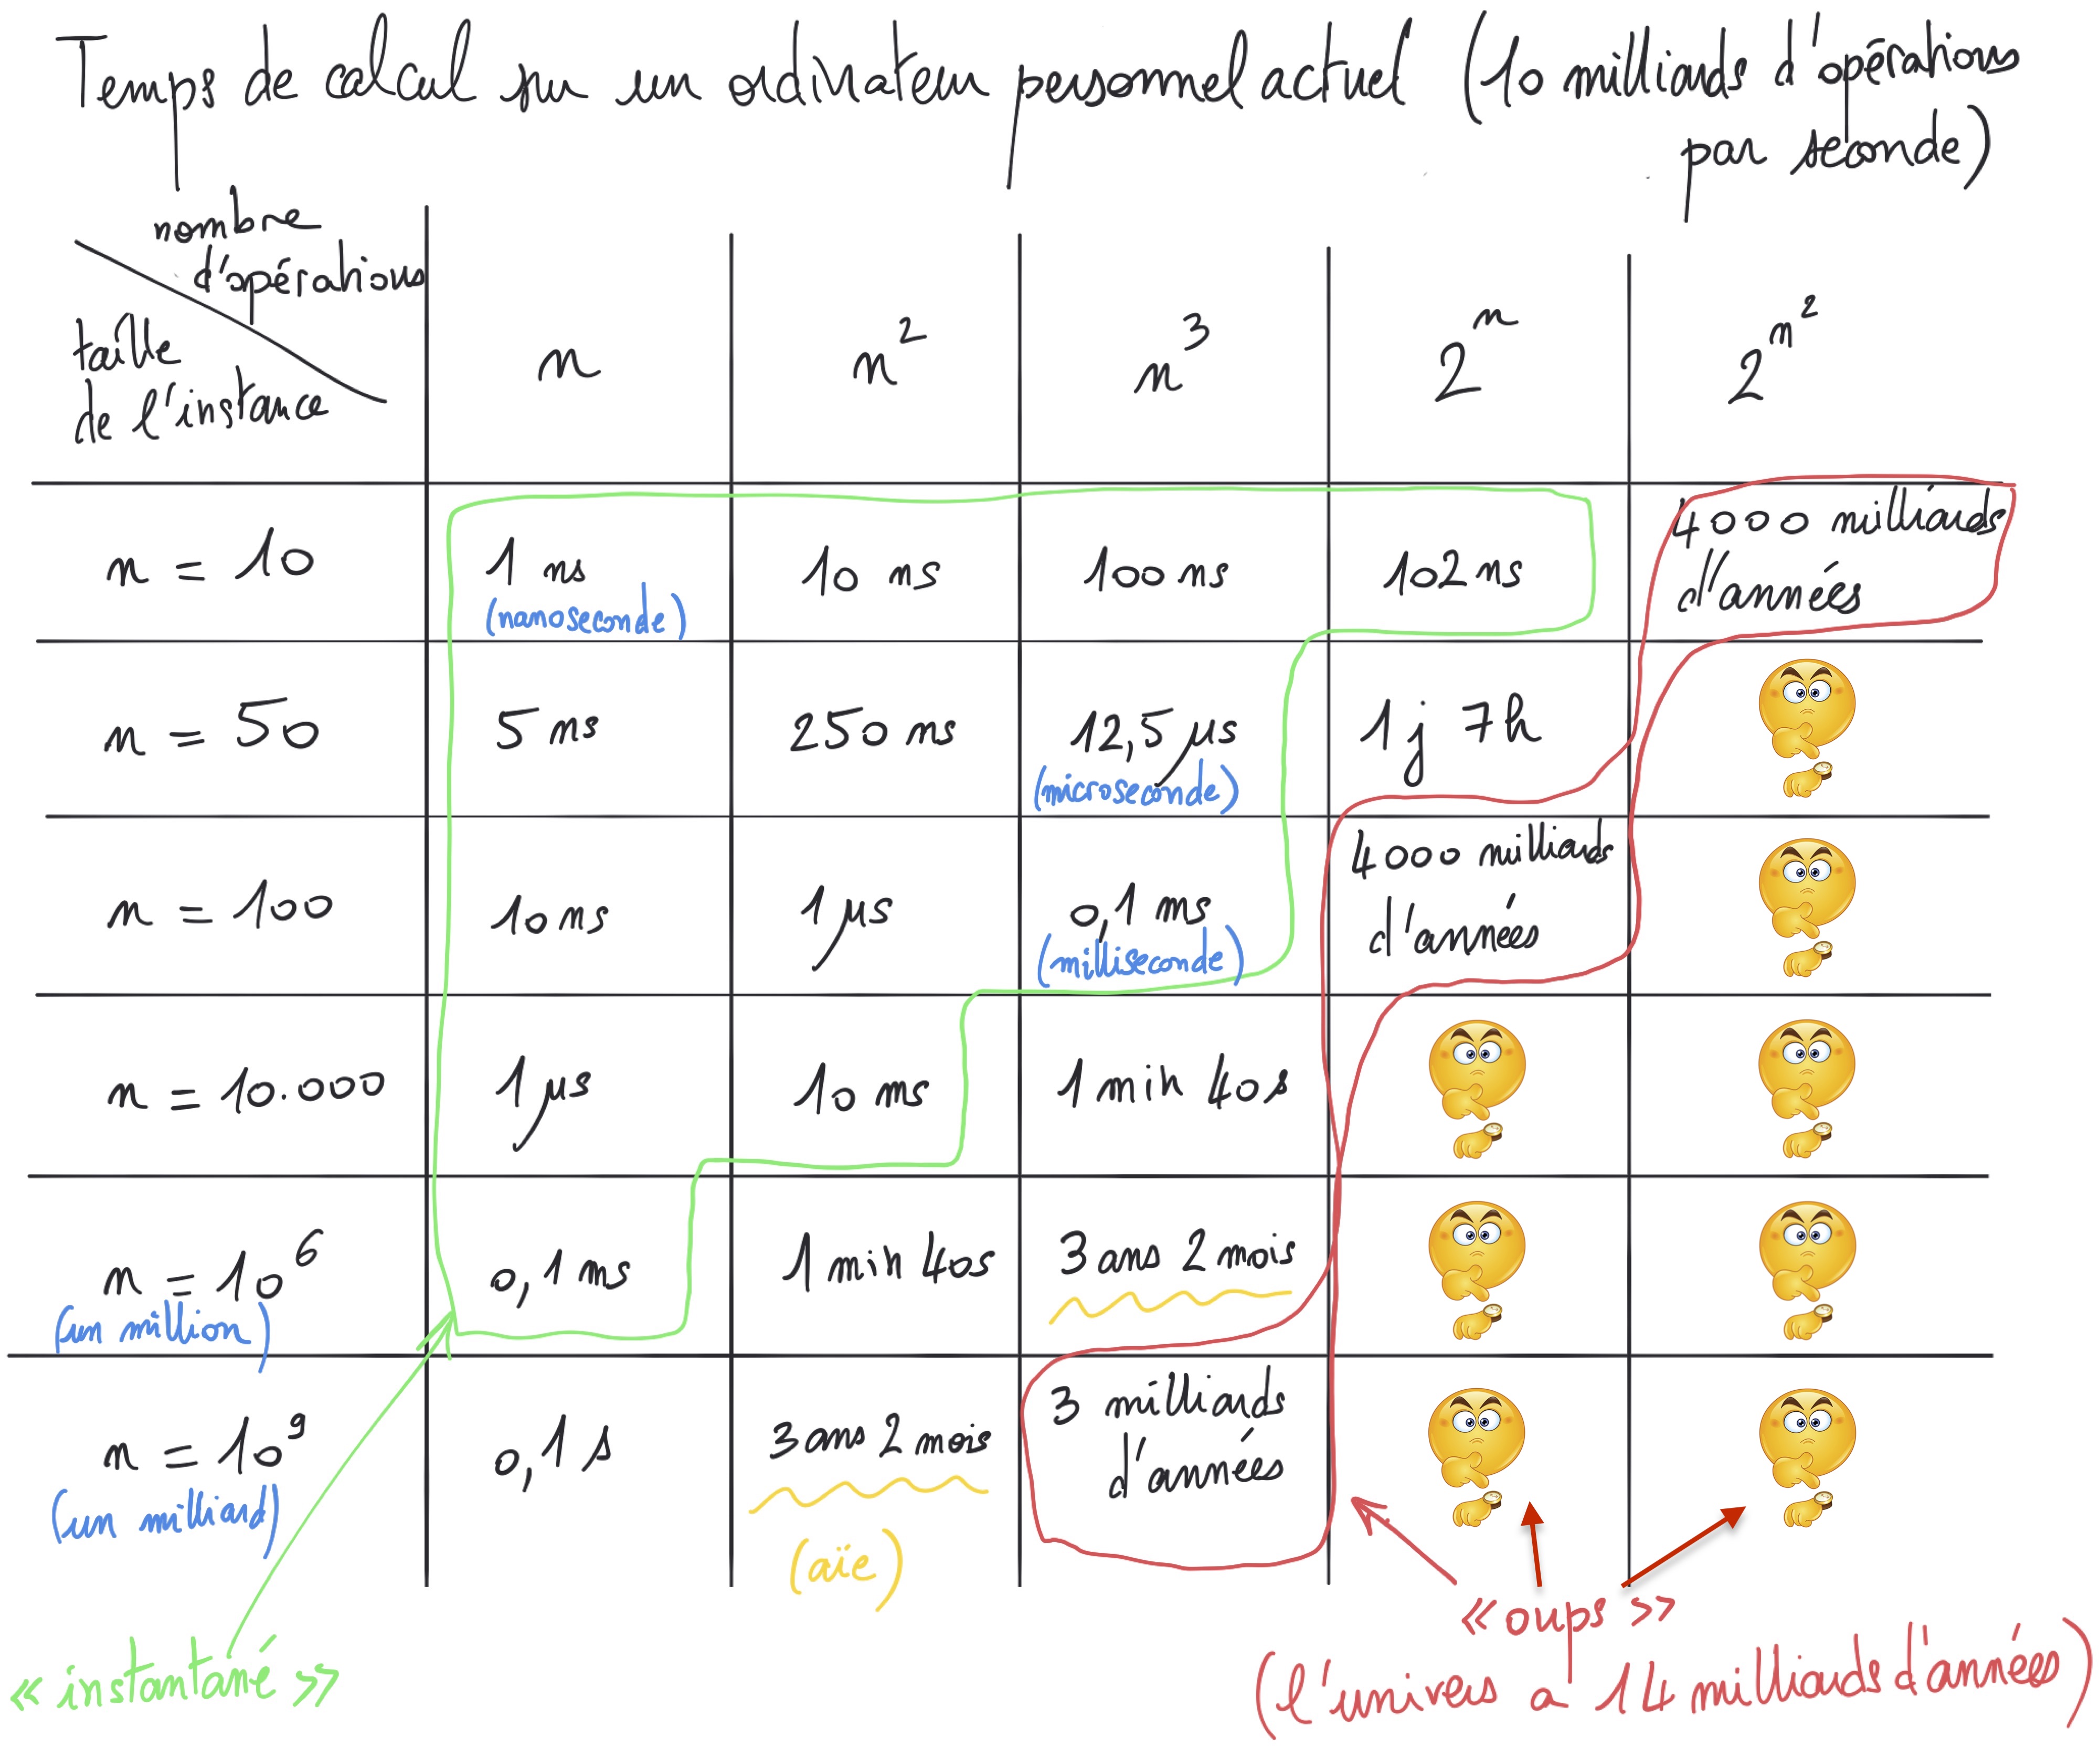 Temps de calcul sur un ordinateur personnel actuel (10 milliards d'opérations
par seconde)
nombre
d'opérations
taille
de l'instance
n
n²
n³
2^n
2^n²
n = 10
1 ns
(nanoseconde)
10 ns
100 ns
102 ns
4000 milliards
d'années
n = 50
5 ns
250 ns
12,5 µs
(microseconde)
1j 7h
n = 100
10 ns
1 µs
0,1 ms
(milliseconde)
4000 milliards
d'années
n = 10.000
1 µs
10 ms
1 min 40s
n = 10⁶
(un million)
0,1 ms
1 min 40s
3 ans 2 mois
n = 10⁹
(un milliard)
0,1 s
3 ans 2 mois
(aïe)
3 milliards
d'années
« oups »
« instantané »
(l'univers a 14 milliards d'années)